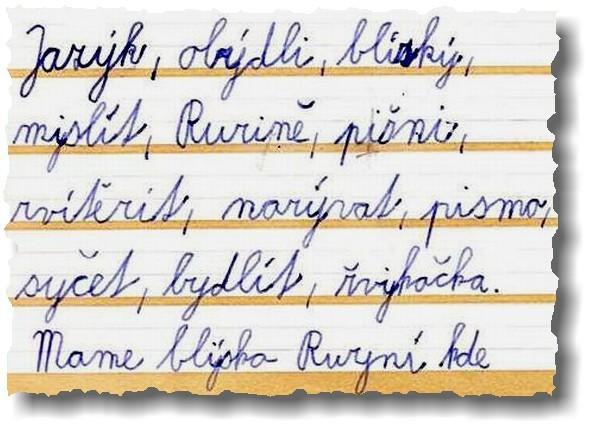 Jazýk, obýdli, blizký,
myslít, Ruzině, pišni,
zvítězit, nazývat, pismo,
syčet, bydlít, žvikačka.
Mame blýska Ruzyní kde